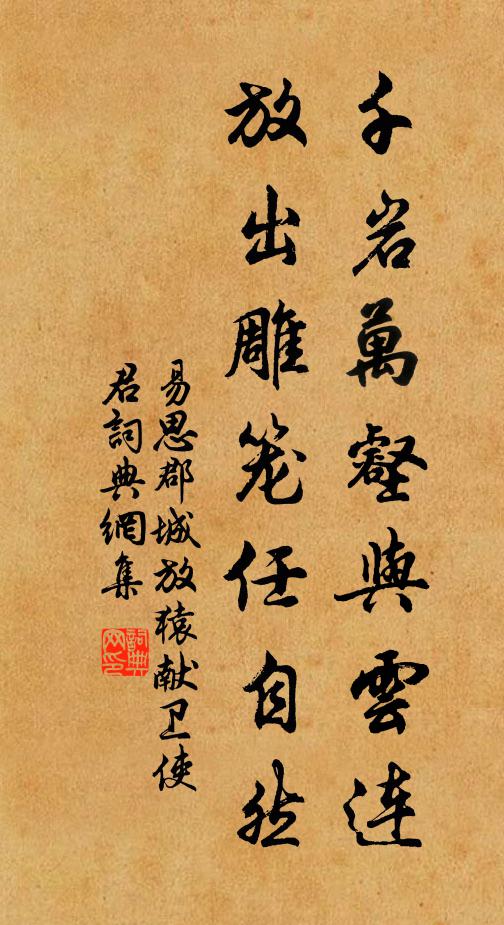 千岩萬壑與雲连
放出雕笼任自然
易思郡城放猿献卫使
君詞典網集
詞典网印